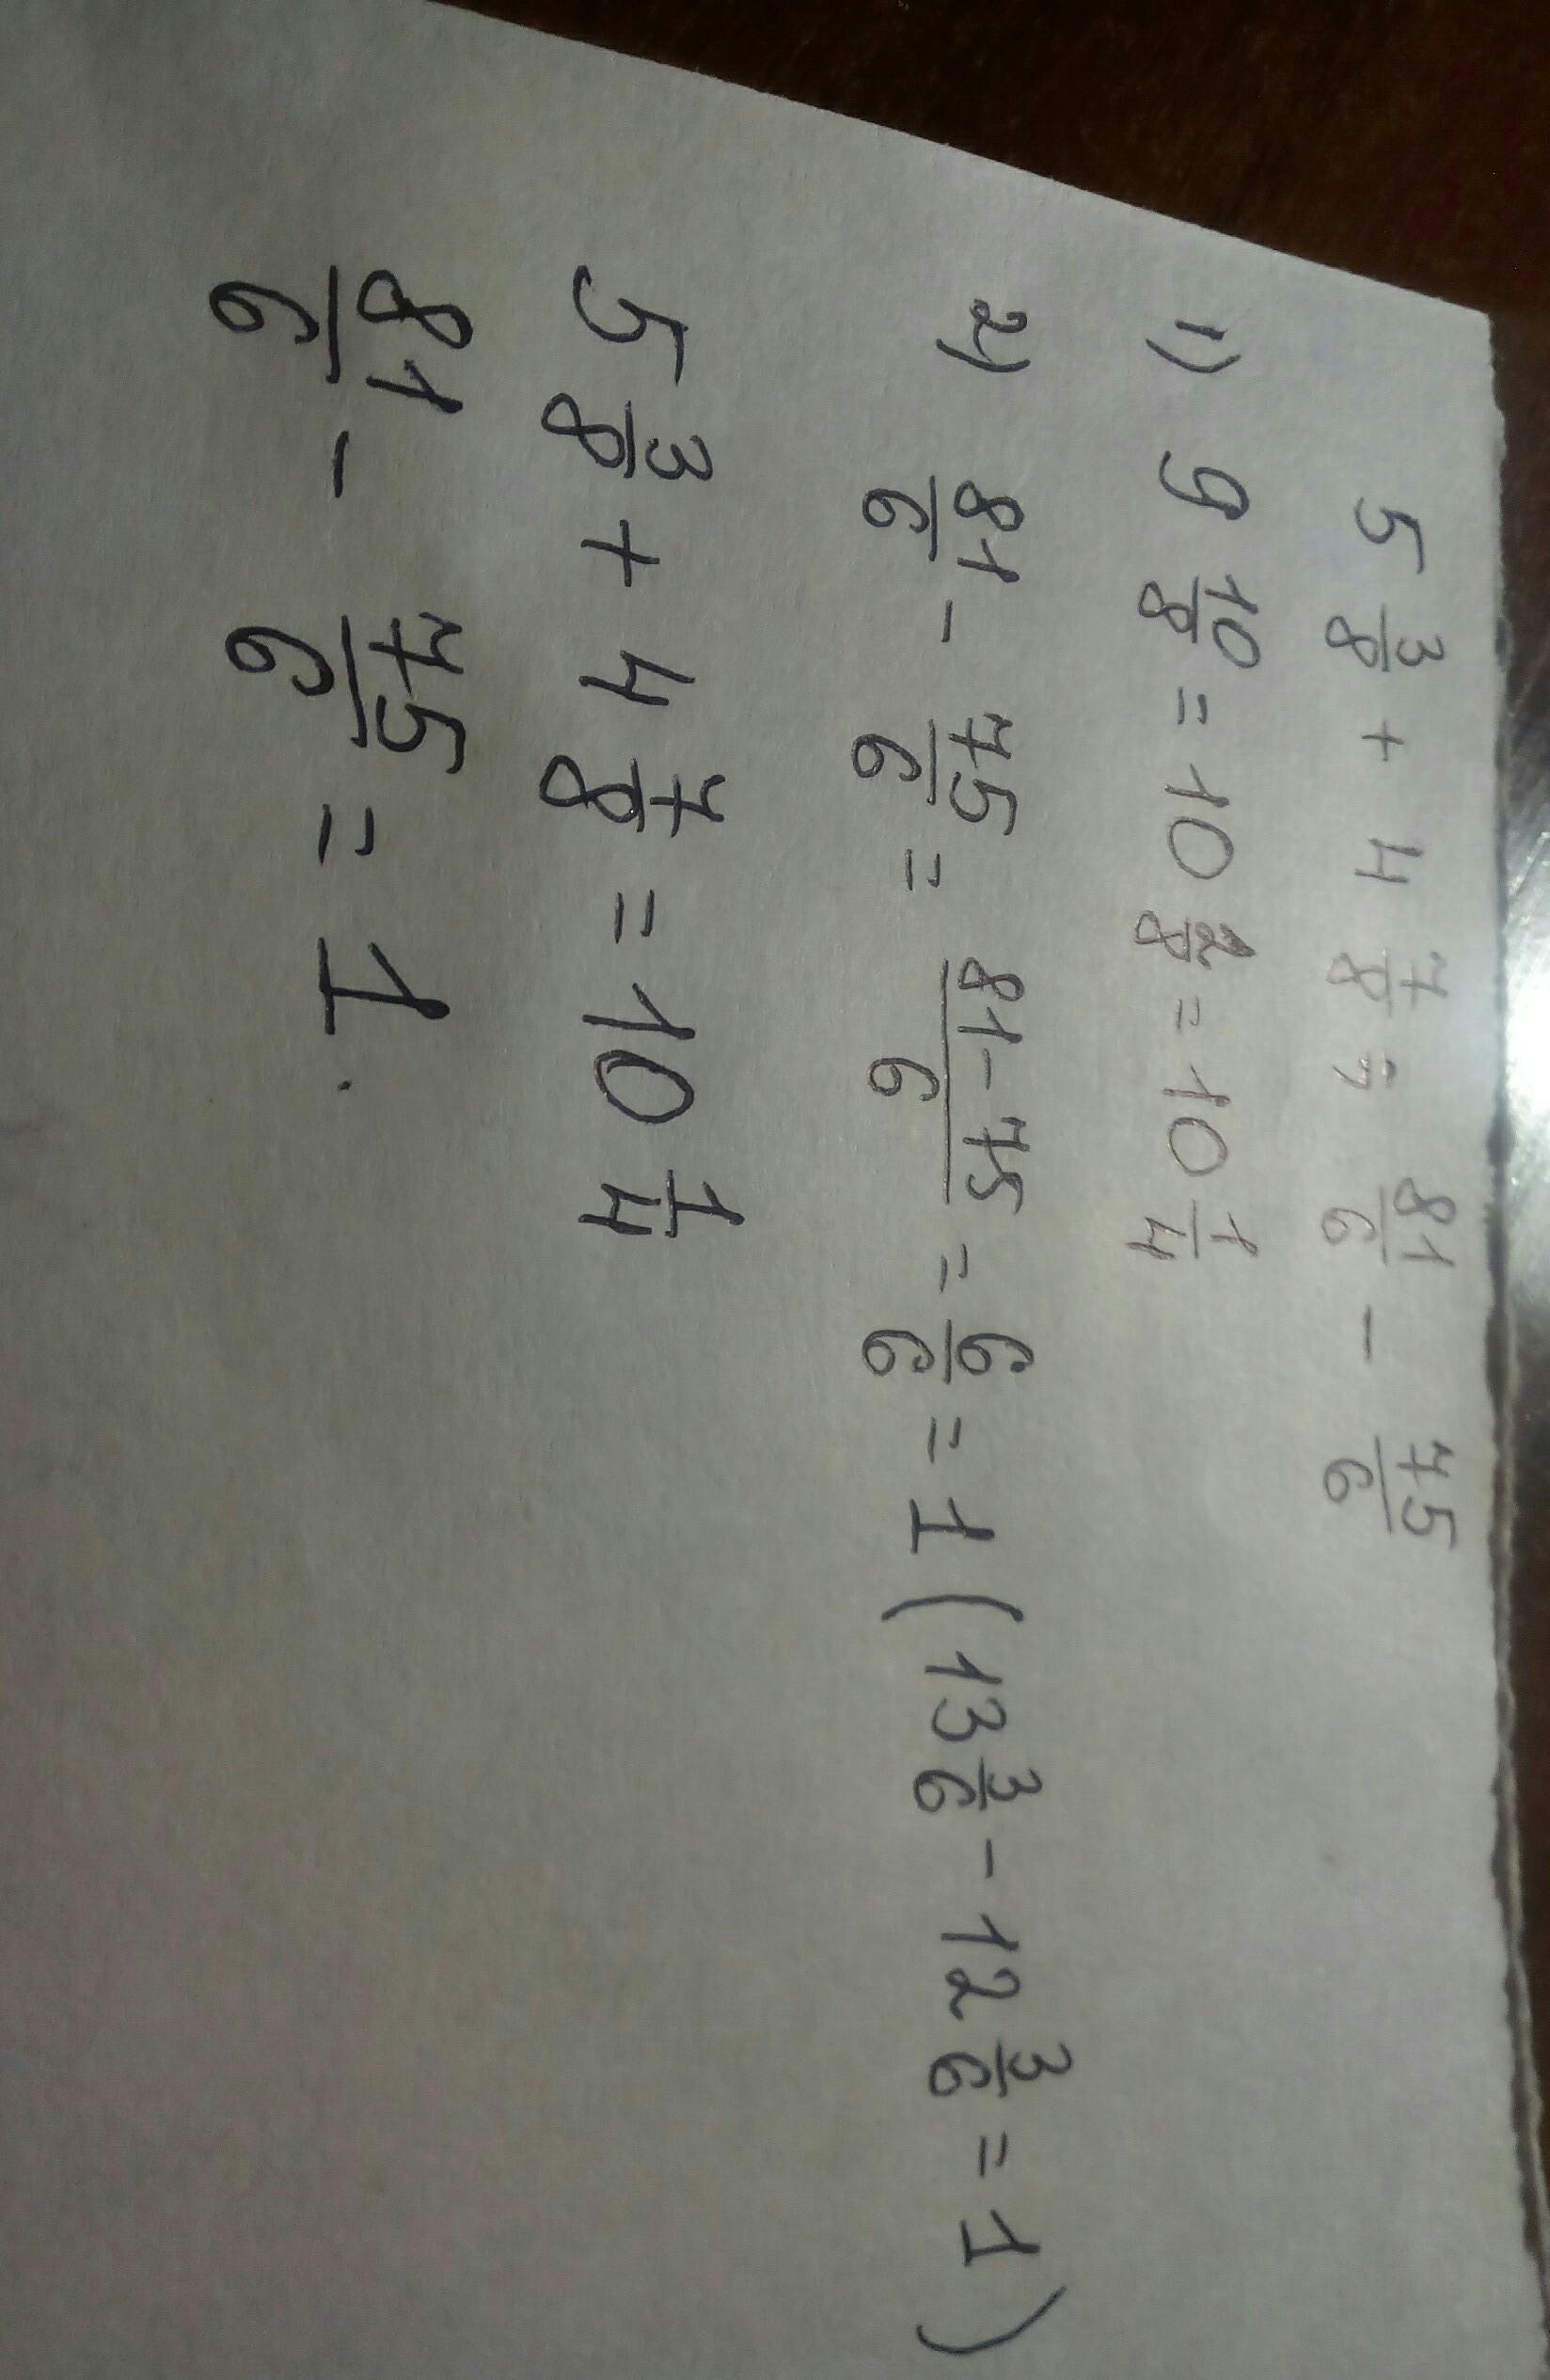 5 3/8 + 4 7/8 ; 81/6 - 75/6
1) 9 10/8 = 10 2/8 = 10 1/4
2) 81/6 - 75/6 = 81-75/6 = 6/6 = 1 (13 3/6 - 12 3/6 = 1)
5 3/8 + 4 7/8 = 10 1/4
81/6 - 75/6 = 1.